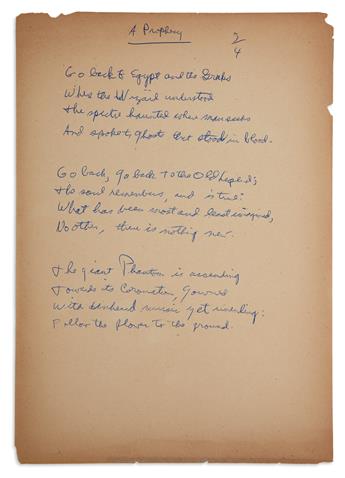 A Prophecy
2/4
Go back to Egypt and the Greeks
When the Wizard understood
the spectre haunted where man seeks
And spoke to ghosts that stood in blood.
Go back, go back to the Old Legend;
the soul remembers, and is true:
What has been most and least imagined,
No other, there is nothing new.
the giant Phantom is ascending
towards its Coronation, gowned
With unheard music yet unending:
Follow the flower to the ground.